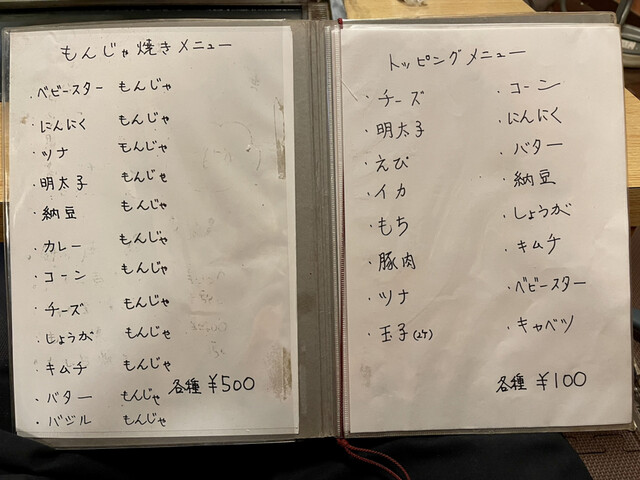 もんじゃ焼きメニュー
・ベビースター もんじゃ
・にんにく もんじゃ
・ツナ もんじゃ
・明太子 もんじゃ
・納豆 もんじゃ
・カレー もんじゃ
・コーン もんじゃ
・チーズ もんじゃ
・しょうが もんじゃ
・キムチ もんじゃ
・バター もんじゃ
・バジル もんじゃ
各種 ¥500
トッピングメニュー
・チーズ
・明太子
・えび
・イカ
・もち
・豚肉
・ツナ
・玉子(2ケ)
・コーン
・にんにく
・バター
・納豆
・しょうが
・キムチ
・ベビースター
・キャベツ
各種 ¥100